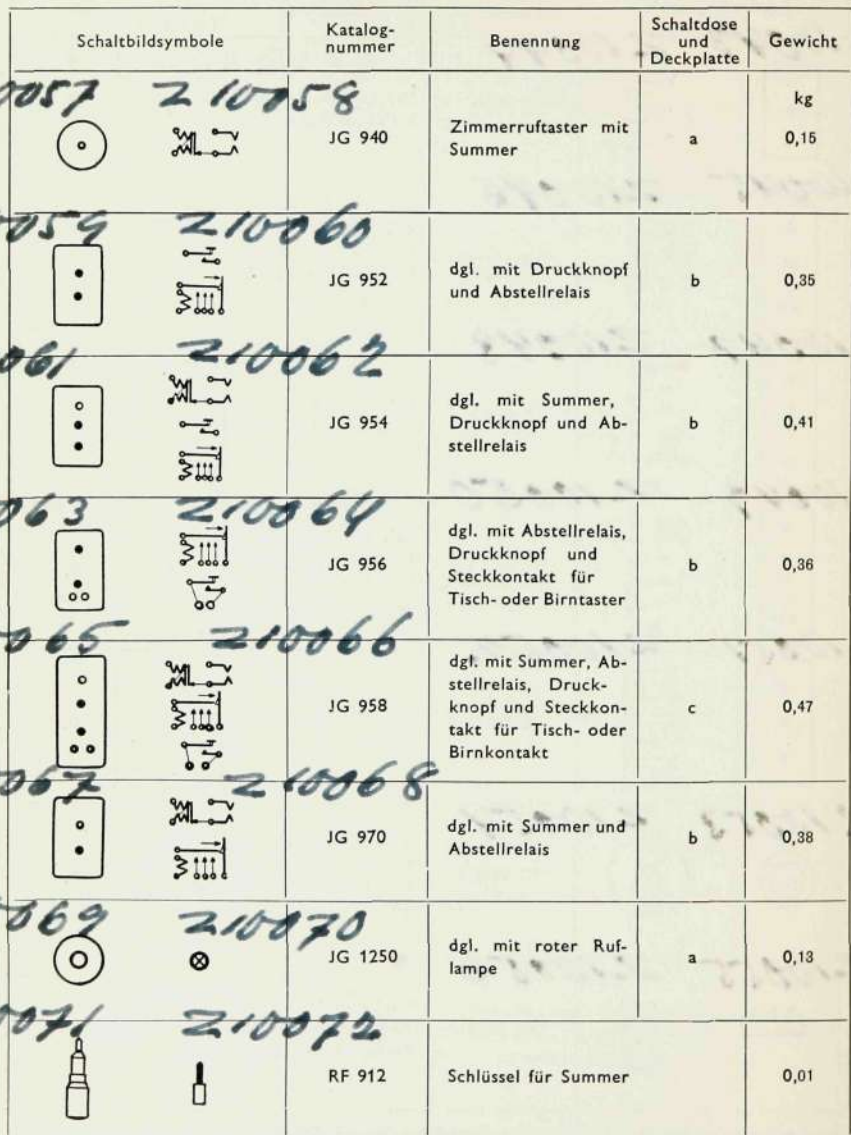 Schaltbildsymbole
Katalog-
nummer
Benennung
Schaltdose
und
Deckplatte
Gewicht
kg
0057 Z 10058
JG 940
Zimmerruftaster mit
Summer
a
0,15
059 Z10060
JG 952
dgl. mit Druckknopf
und Abstellrelais
b
0,35
061 Z10062
JG 954
dgl. mit Summer,
Druckknopf und Ab-
stellrelais
b
0,41
063 Z10064
JG 956
dgl. mit Abstellrelais,
Druckknopf und
Steckkontakt für
Tisch- oder Birntaster
b
0,36
065 Z10066
JG 958
dgl. mit Summer, Ab-
stellrelais, Druck-
knopf und Steckkon-
takt für Tisch- oder
Birnkontakt
c
0,47
067 Z10068
JG 970
dgl. mit Summer und
Abstellrelais
b
0,38
069 Z10070
JG 1250
dgl. mit roter Ruf-
lampe
a
0,13
0071 Z10072
RF 912
Schlüssel für Summer
0,01